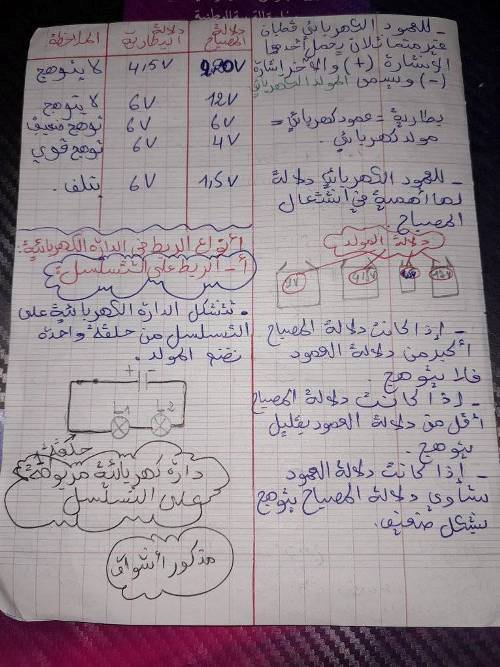 - للعمود الكهربائي قطبان
غير متماثلان يحمل أحدهما
الإشارة (+) والآخر إشارة
(-) ويسمى المولد الكهربائي
بطارية = عمود كهربائي =
مولد كهربائي.
- للعمود الكهربائي دلالة
لها أهمية في اشتعال
المصباح.
دلالة المولد
9V 4,5V 1,5V 12V
- إذا كانت دلالة المصباح
أكبر من دلالة العمود
فلا يتوهج.
- إذا كانت دلالة المصباح
أقل من دلالة العمود بقليل
يتوهج.
- إذا كانت دلالة العمود
تساوي دلالة المصباح يتوهج
بشكل ضعيف.
دلالة المصباح دلالة البطارية الملاحظة
220V 4,5V لا يتوهج
12V 6V لا يتوهج
6V 6V توهج ضعيف
4V 6V توهج قوي
1,5V 6V يتلف.
أنواع الربط في الدارة الكهربائية:
أ- الربط على التسلسل:
• تتشكل الدارة الكهربائية على
التسلسل من حلقة واحدة
تضم المولد.
+ -
L1 L2
حلقة
دارة كهربائية مربوطة
على التسلسل
مذكور أشواق